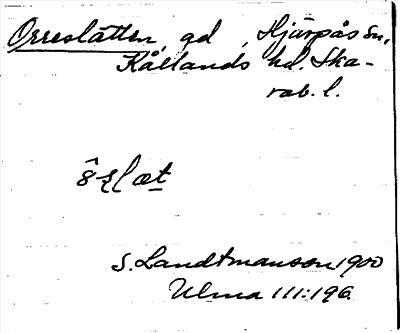 Orreslätten, gd, Hjärpås sn,
Kållands hd. Ska-
rab. l.
S. Landtmanson 1900
Ulma 111:196.